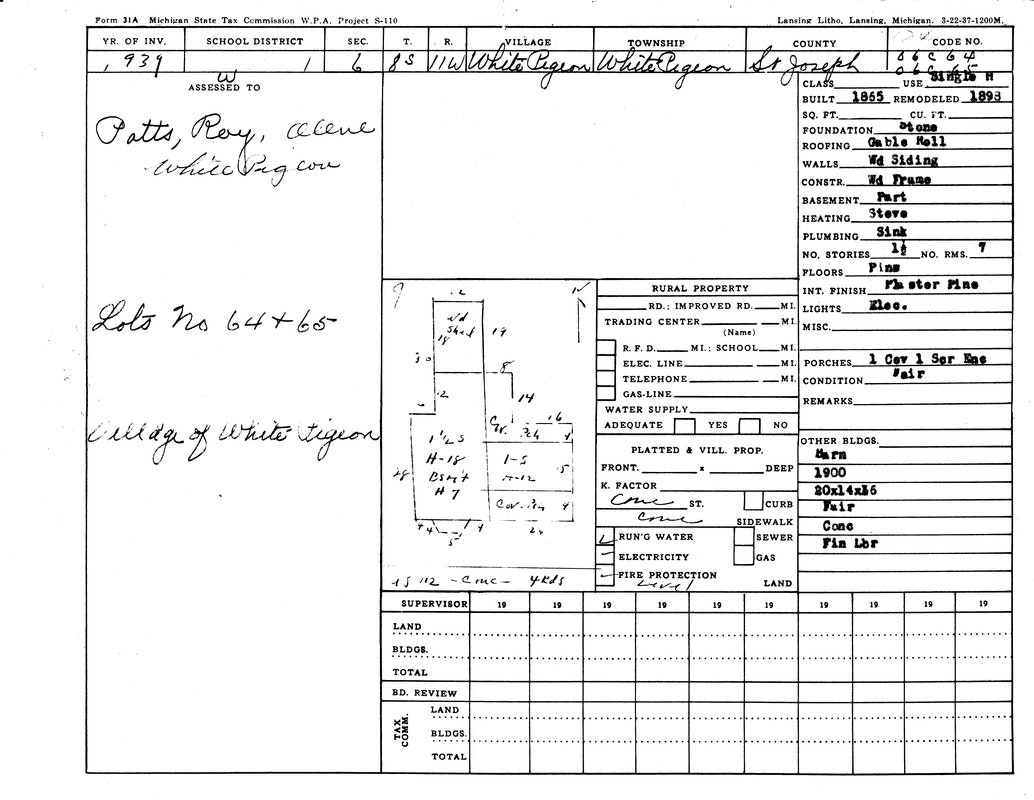 Form 31A Michigan State Tax Commission W.P.A. Project S-110
Lansing Litho, Lansing, Michigan. 3-22-37-1200M.
YR. OF INV. SCHOOL DISTRICT SEC. T. R. VILLAGE TOWNSHIP COUNTY CODE NO.
1939 1 6 8S 11W White Pigeon White Pigeon St Joseph 06C64
06C65
W
ASSESSED TO
Potts, Roy,
White Pigeon
Lots No 64+65
Village of White Pigeon
CLASS USE Single H
BUILT 1865 REMODELED 1898
SQ. FT. CU. FT.
FOUNDATION Stone
ROOFING Gable Roll
WALLS Wd Siding
CONSTR. Wd Frame
BASEMENT Part
HEATING Stove
PLUMBING Sink
NO. STORIES 1½ NO. RMS. 7
FLOORS Pine
INT. FINISH Plaster Pine
LIGHTS Elec.
MISC.
PORCHES 1 Cov 1 Scr Enc
CONDITION Fair
REMARKS
OTHER BLDGS.
Barn
1900
20x14x16
Fair
Conc
Fin Lbr
RURAL PROPERTY
RD.; IMPROVED RD. MI.
TRADING CENTER MI.
(Name)
R. F. D. MI.; SCHOOL MI.
ELEC. LINE MI.
TELEPHONE MI.
GAS-LINE
WATER SUPPLY
ADEQUATE YES NO
PLATTED & VILL. PROP.
FRONT. x DEEP
K. FACTOR
Conc ST. CURB
Conc SIDEWALK
RUN'G WATER SEWER
ELECTRICITY GAS
FIRE PROTECTION
Level LAND
12
Wd
Shed 19
18
8
12 14
6 16
Gr. Pch 4
1½ S
H-18 1-S
28 Bsmt H-12
H 7
Cov. Pch 4
4 4 4 24
5
1S 112 - Conc - 4Rds
SUPERVISOR 19 19 19 19 19 19 19 19 19 19
LAND
BLDGS.
TOTAL
BD. REVIEW
TAX COMM.
LAND
BLDGS.
TOTAL